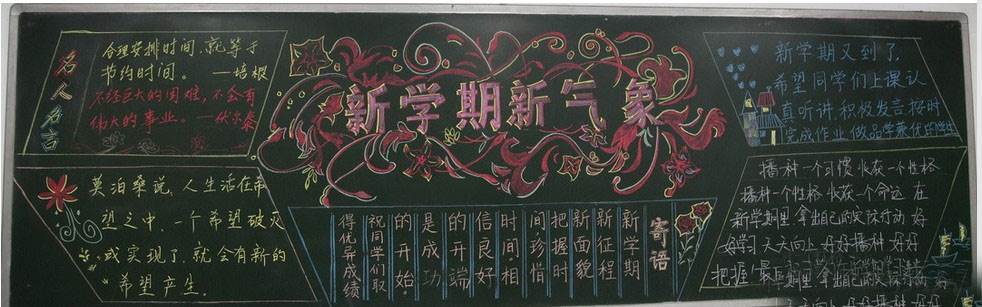 新学期新气象
名人名言
合理安排时间，就等于
节约时间。——培根
不经巨大的困难，不会有
伟大的事业。——伏尔泰
莫泊桑说，人生活在希
望之中，一个希望破灭
或实现了，就会有新的
希望产生。
寄语
新学期
新征程
新面貌
把握时
间珍惜
时间·相
信良好
的开端
是成功
的开始·
祝同学们取
得优异成绩
新学期又到了，
希望同学们上课认
真听讲，积极发言，按时
完成作业，做品学兼优的学生
播种一个习惯 收获一个性格
播种一个性格 收获一个命运 在
新学期里 拿出自己的实际行动 好
好学习 天天向上 好好播种 好好
把握！
拿出自己的实际行动 好